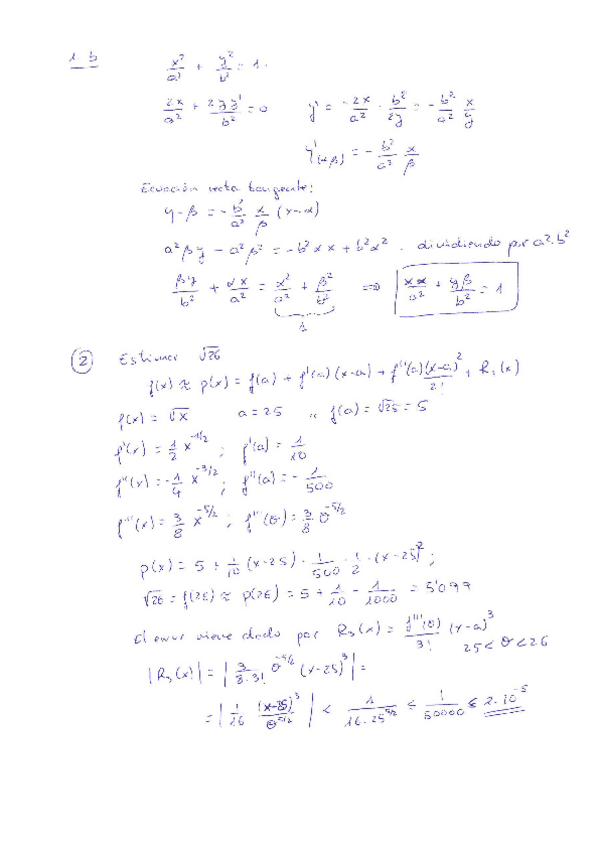 1 b x²/a² + y²/b² = 1.
2x/a² + 2yy'/b² = 0 y' = -2x/a² · b²/2y = -b²/a² x/y
y'(α,β) = -b²/a² α/β
Ecuación recta tangente:
y-β = -b²/a² α/β (x-α)
a²βy - a²β² = -b²αx + b²α². dividiendo por a²·b²
βy/b² + αx/a² = α²/a² + β²/b² ⇒ xα/a² + yβ/b² = 1
1
② Estimar √26
f(x) ≈ p(x) = f(a) + f'(a)(x-a) + f''(a)(x-a)²/2! + R₃(x)
f(x) = √x a = 25 ,, f(a) = √25 = 5
f'(x) = 1/2 x^-1/2 ; f'(a) = 1/10
f''(x) = -1/4 x^-3/2 ; f''(a) = -1/500
f'''(x) = 3/8 x^-5/2 ; f'''(θ) = 3/8 θ^-5/2
p(x) = 5 + 1/10 (x-25) - 1/500 · 1/2 · (x-25)² ;
√26 = f(26) ≈ p(26) = 5 + 1/10 - 1/1000 = 5'099
El error viene dado por R₃(x) = f'''(θ)/3! (x-a)³
25 < θ < 26
|R₃(x)| = | 3/8·3! θ^-5/2 (x-25)³ | =
= | 1/16 (x-25)³/θ^5/2 | < 1/16·25^5/2 ≤ 1/50000 ≤ 2·10^-5